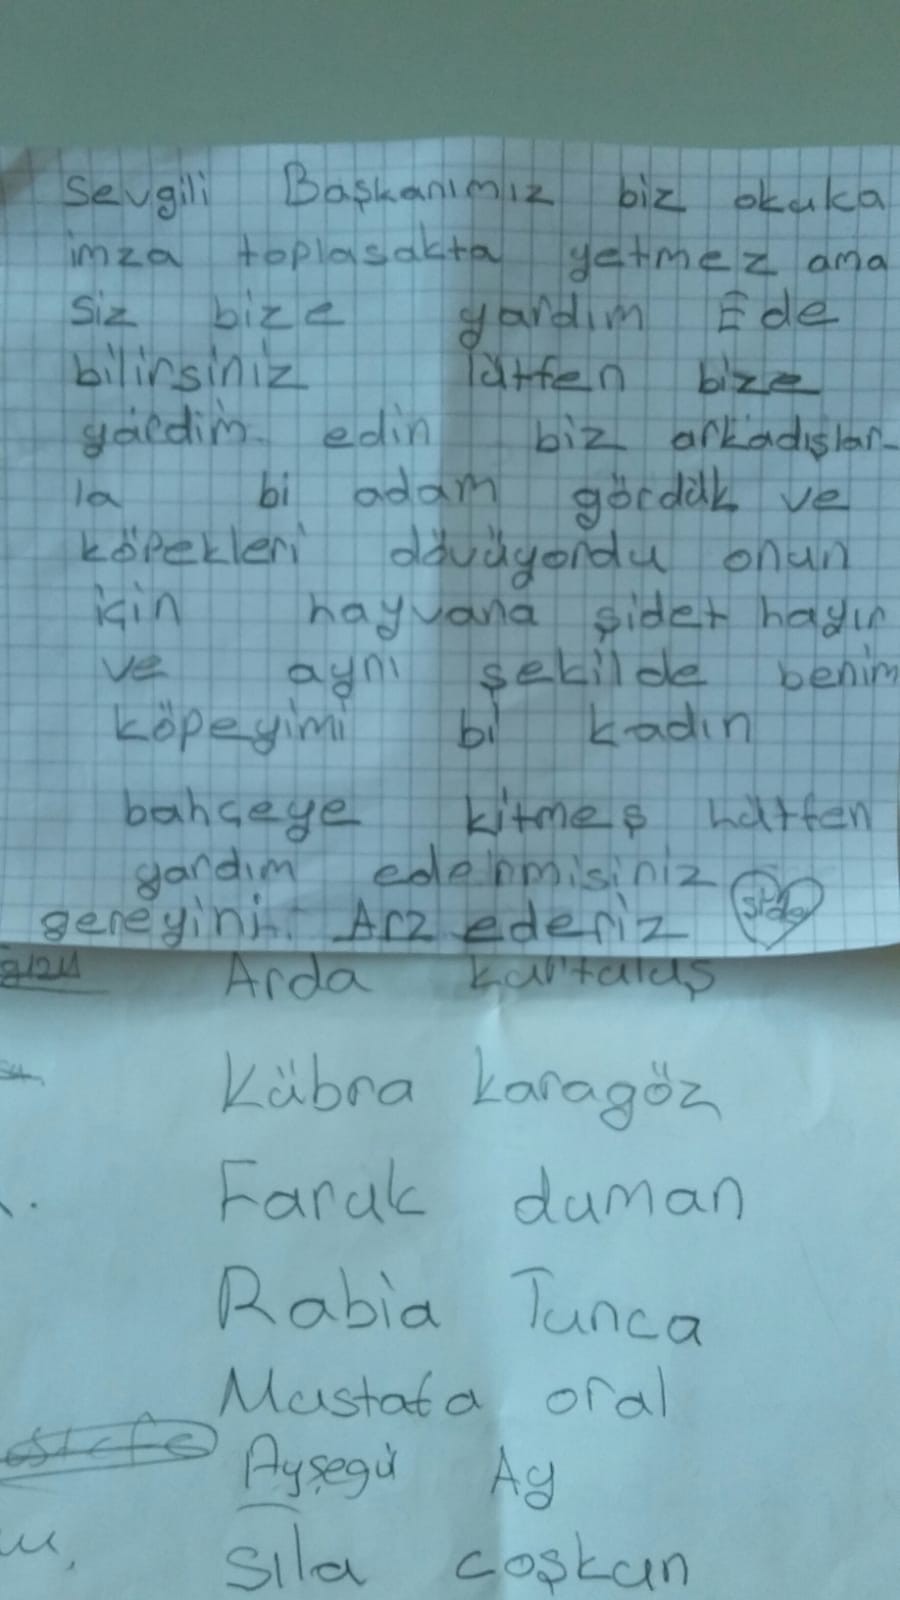 Sevgili Başkanımız biz okuka
imza toplasakta yetmez ama
siz bize yardım Ede
bilirsiniz lütfen bize
yardım edin biz arkadışlar-
la bi adam gördük ve
köpekleri dövüyordu onun
için hayvana şidet hayır
ve aynı şekilde benim
köpeyimi bi kadın
bahçeye kitmeş Lütfen
yardım edermisiniz
gereyini. Arz ederiz
Arda
Kübra karagöz
Faruk duman
Rabia Tunca
Mustafa oral
Ayşegü Ay
Sıla coşkun